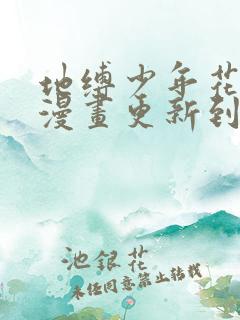 地缚少年花
漫畫更新到
池銀花
未经同意禁止转载